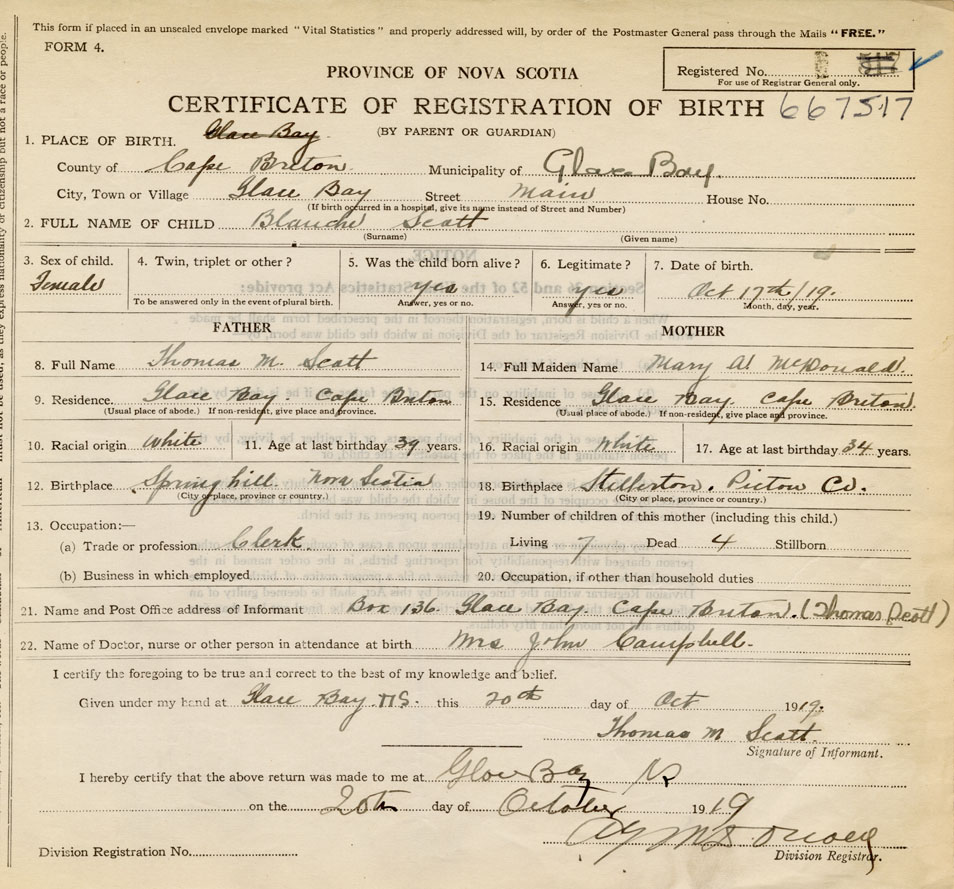 This form if placed in an unsealed envelope marked "Vital Statistics" and properly addressed will, by order of the Postmaster General pass through the Mails "FREE."
FORM 4.
Registered No.
For use of Registrar General only.
PROVINCE OF NOVA SCOTIA
CERTIFICATE OF REGISTRATION OF BIRTH 667517
(BY PARENT OR GUARDIAN)
1. PLACE OF BIRTH. Glace Bay
County of Cape Breton Municipality of Glace Bay.
City, Town or Village Glace Bay Street Main House No.
(If birth occurred in a hospital, give its name instead of Street and Number)
2. FULL NAME OF CHILD Blanche Scott
(Surname) (Given name)
3. Sex of child. 4. Twin, triplet or other? 5. Was the child born alive? 6. Legitimate? 7. Date of birth.
Female yes yes Oct 17th/19.
To be answered only in the event of plural birth. Answer, yes or no. Answer, yes or no. Month, day, year.
FATHER MOTHER
8. Full Name Thomas M. Scott 14. Full Maiden Name Mary A McDonald.
9. Residence. Glace Bay. Cape Breton 15. Residence Glace Bay. Cape Breton.
(Usual place of abode.) If non-resident, give place and province. (Usual place of abode.) If non-resident, give place and province.
10. Racial origin White 11. Age at last birthday 39 years. 16. Racial origin White 17. Age at last birthday 34 years.
12. Birthplace Springhill. Nova Scotia 18. Birthplace Stillerton. Pictou Co.
(City or place, province or country.) (City or place, province or country.)
13. Occupation:— 19. Number of children of this mother (including this child.)
(a) Trade or profession Clerk. Living 7 Dead 4 Stillborn
(b) Business in which employed 20. Occupation, if other than household duties
21. Name and Post Office address of Informant Box 136 Glace Bay. Cape Breton. (Thomas Scott)
22. Name of Doctor, nurse or other person in attendance at birth Mrs John Campbell.
I certify the foregoing to be true and correct to the best of my knowledge and belief.
Given under my hand at Glace Bay. N.S. this 20th day of Oct 1919.
Thomas M Scott.
Signature of Informant.
I hereby certify that the above return was made to me at Glace Bay NS
on the 20th day of October 1919
Division Registration No. Division Registrar.